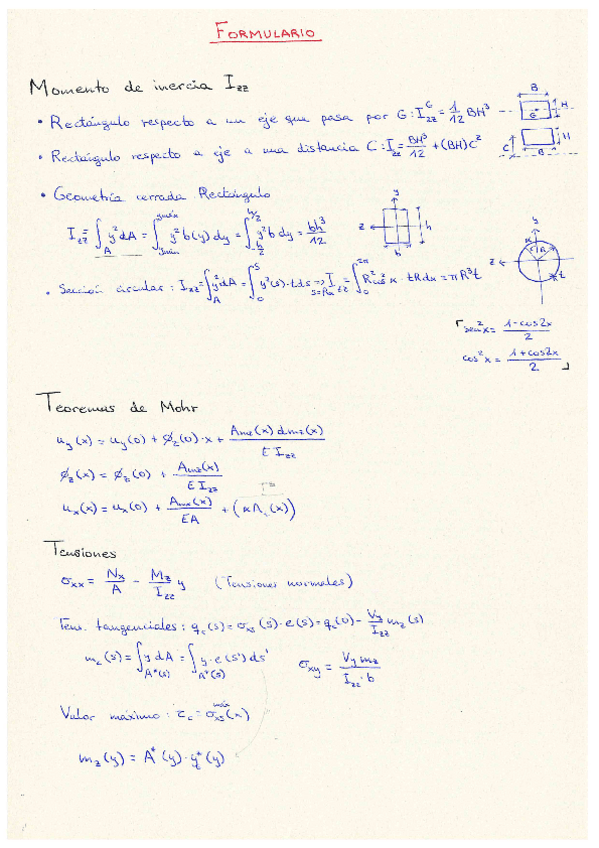 FORMULARIO
Momento de inercia Izz
• Rectángulo respecto a un eje que pasa por G: I_zz^G = 1/12 BH³
B
G
H
• Rectángulo respecto a eje a una distancia C: I_zz = BH³/12 + (BH)C²
C
B
H
• Geometría cerrada Rectángulo
I_zz = ∫_A y² dA = ∫ y² b(y) dy = ∫_{-h/2}^{h/2} y² b dy = bh³/12
y
z
h
b
• Sección circular: I_zz = ∫_A y² dA = ∫_0^S y²(s)·t ds ⇒ I_zz = ∫_0^{2π} R² cos² α · tR dα = πR³t
y
z
α
R
t
sen² x = (1-cos2x)/2
cos² x = (1+cos2x)/2
Teoremas de Mohr
u_y(x) = u_y(0) + ϕ_z(0)·x + A_mz(x) d_mz(x) / E I_zz
ϕ_z(x) = ϕ_z(0) + A_mz(x) / E I_zz
u_x(x) = u_x(0) + A_mx(x) / EA
Tensiones
σ_xx = N_x/A - M_z/I_zz y (Tensiones normales)
Tens. tangenciales: q_c(s) = σ_xs(s)·e(s) = q_c(0) - V_y/I_zz m_z(s)
m_z(s) = ∫_{A*(s)} y dA = ∫_{A*(s)} y·e(s') ds'
σ_xy = V_y m_z / I_zz·b
Valor máximo: τ_c = σ_xs^máx(x)
m_z(y) = A*(y)·y*_G(y)